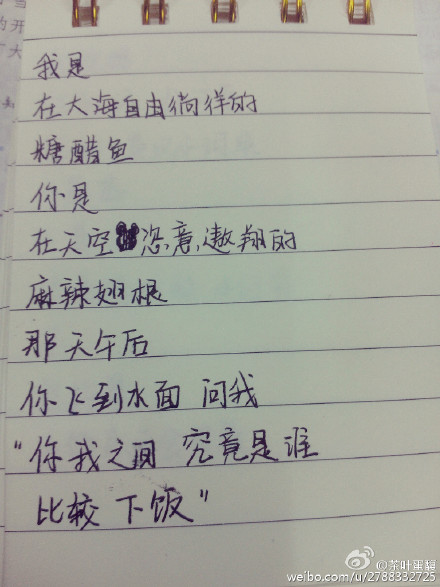 我是
在大海自由徜徉的
糖醋鱼
你是
在天空恣意遨翔的
麻辣翅根
那天午后
你飞到水面 问我
“你我之间 究竟是谁
比较 下饭”
@茶叶蛋
weibo.com/u/2788332725